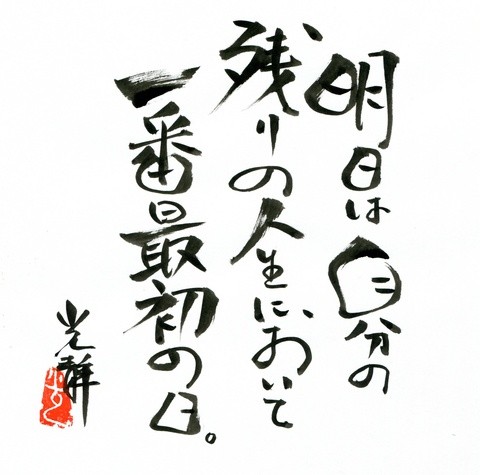 明日は自分の
残りの人生において
一番最初の日。
光静